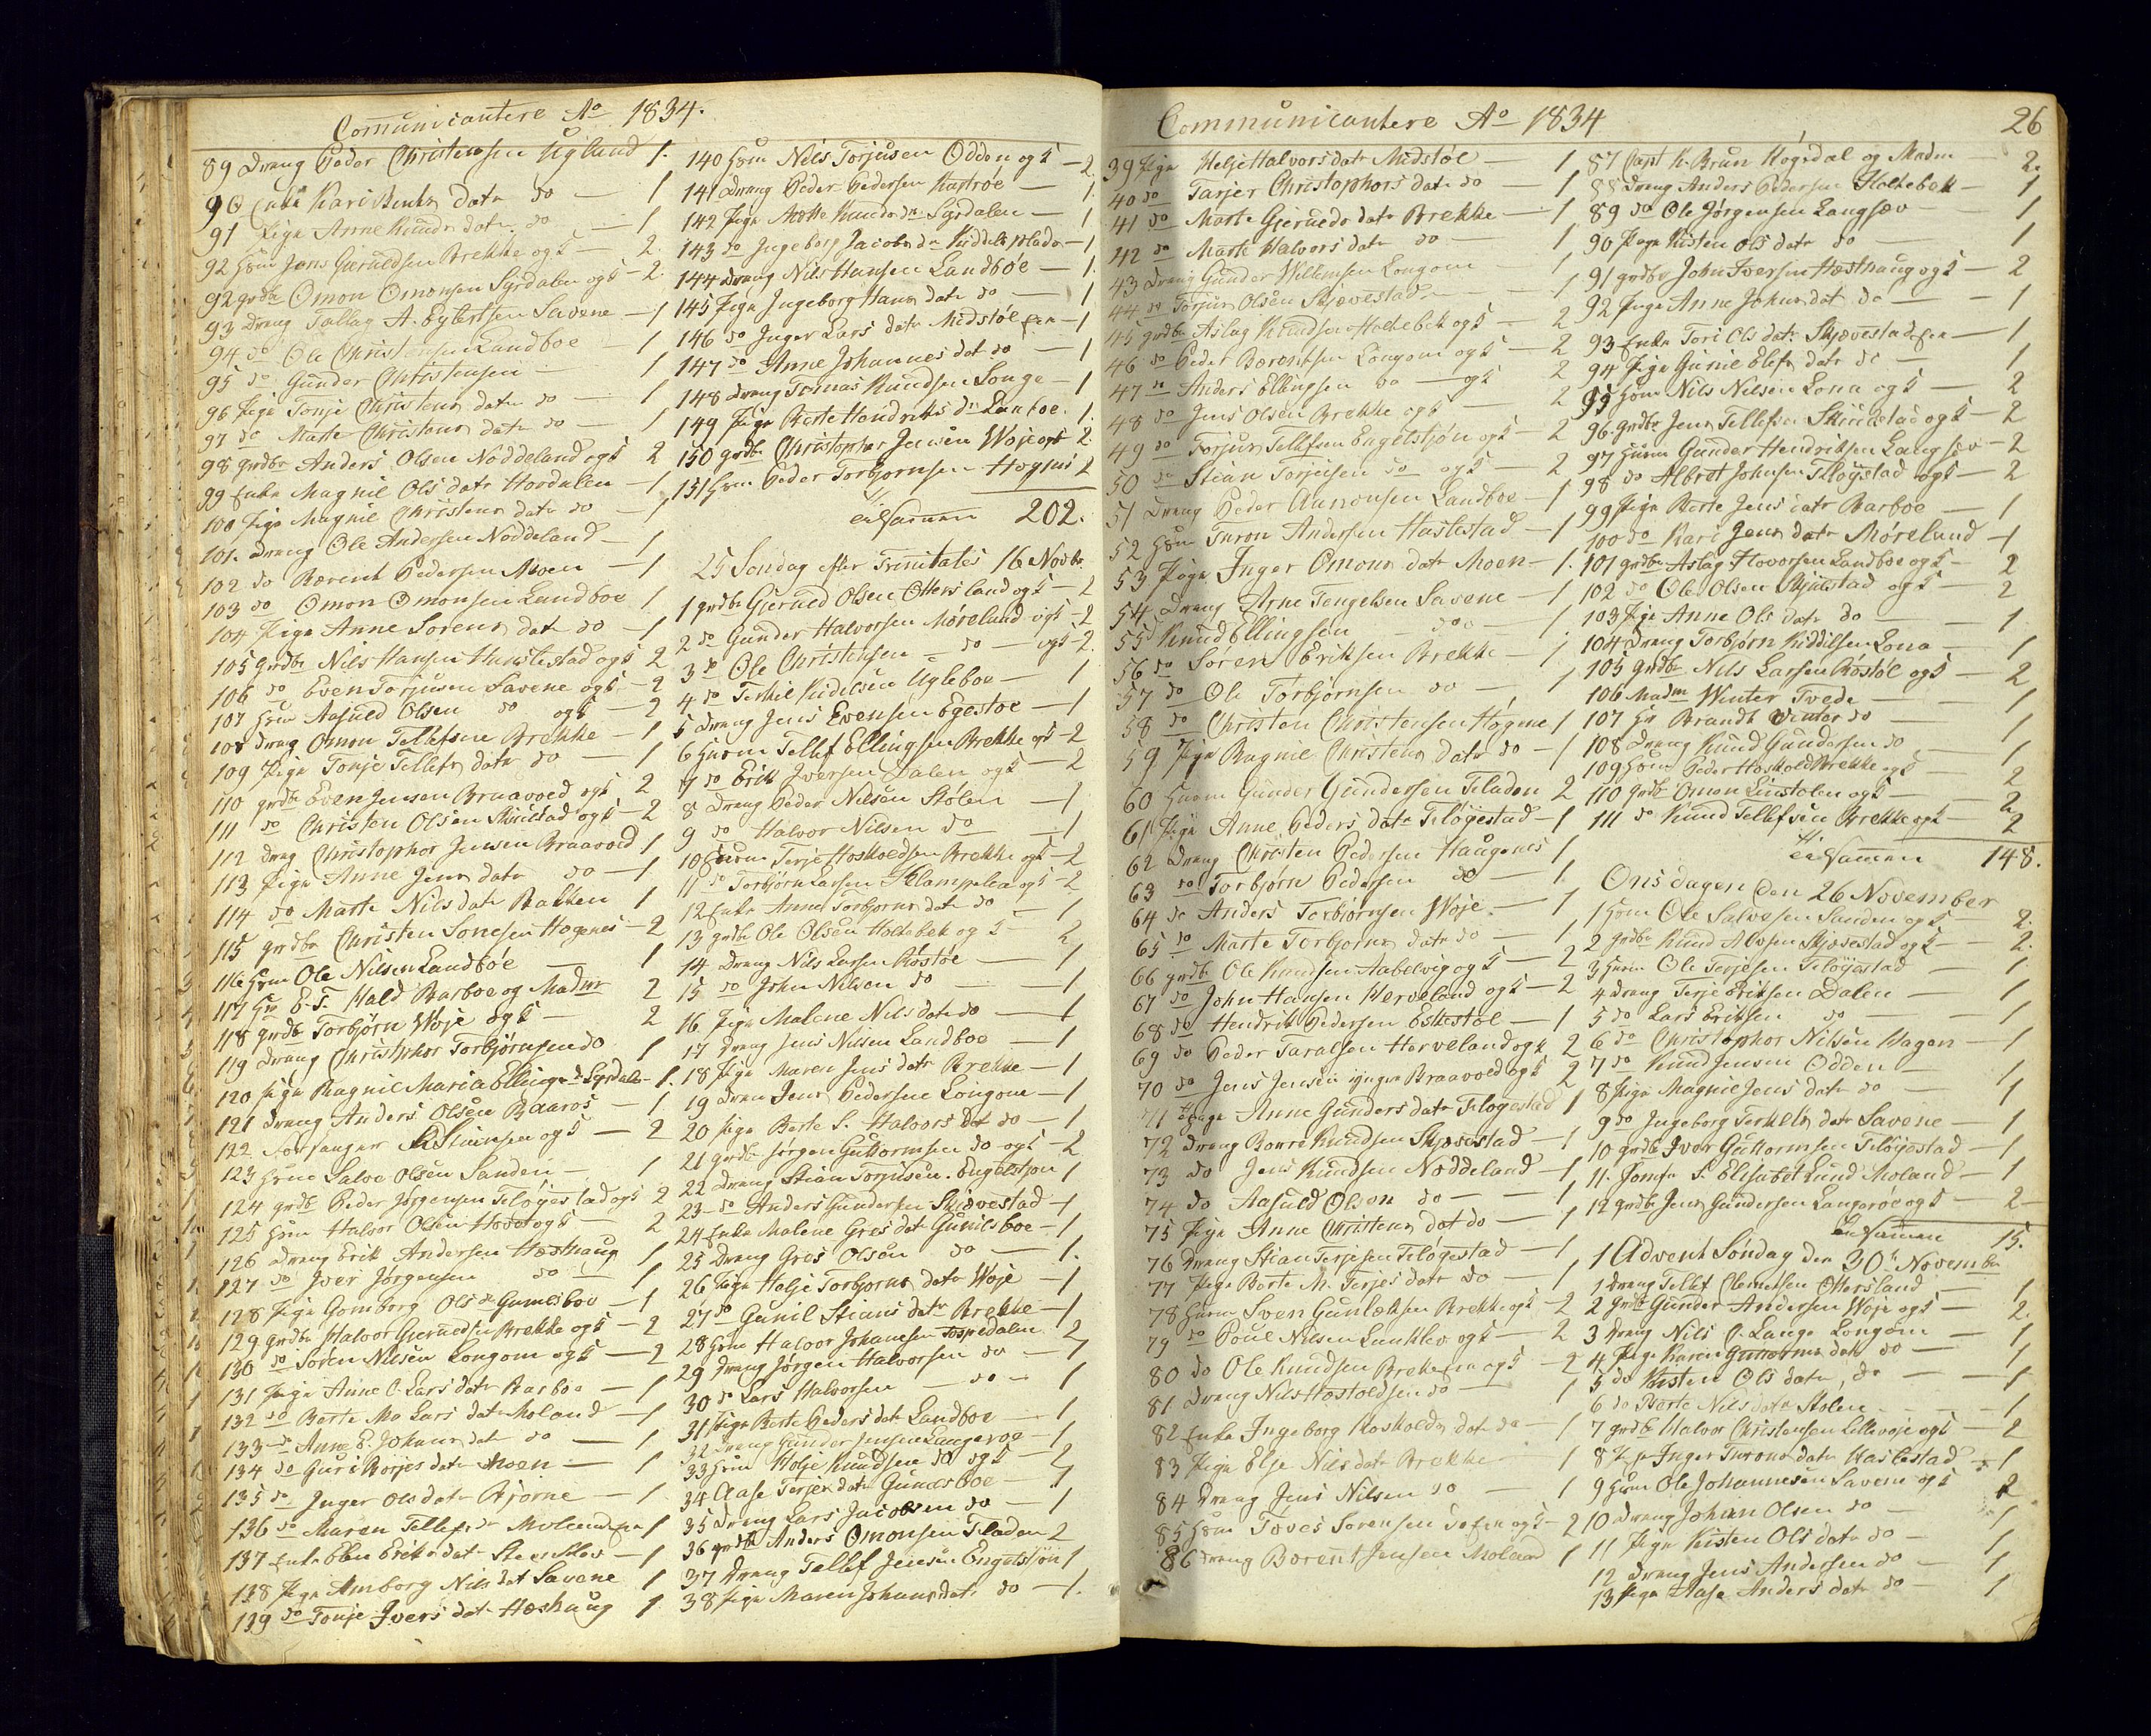 Communicantere Ao 1834.
89 Drang Peder Christensen Ugland 1.
90 Enke Kari Bents datr do 1
91 Pige Anne Knuds datr do 1
92 Hsm Jens Gieruldsen Brekke og K 2.
92 grdbr Omon Omonsen Syrdalen og K 2.
93 Drang Tallag A. Eylertsen Savene 1
94 do Ole Christensen Landboe 1
95 do Gunder Christensen 1
96 Pige Tonje Christens datr do 1
97 do Marte Christens datr do 1
98 grdbr Anders Olsen Noddeland og K 2
99 Enke Magnil Ols datr Hordalen 1
100 Pige Magnil Christens datr do 1
101. Drang Ole Andersen Noddeland 1
102 do Berent Pedersen Moen 1
103 do Omon Omonsen Landboe 1
104 Pige Anne Sorens datr do 1
105 grdbr Nils Hansen Hastestad og K 2
106 do Even Torjusen Savene og K 2
107 Hsm Aasuld Olsen do og K 2
108 Drang Omon Tellefsen Brekke 1
109 Pige Tonje Tellefs datr do 1
110 grdbr Even Jensen Braavold og K 2
111 do Christen Olsen Skiulstad og K 2
112 Drag Christopher Jensen Braavold 1
113 Pige Anne Jens datr do 1
114 do Marte Nils datr Bakken 1
115 grdbr Christen Sonesen Hogenes 2
116 Hsm Ole Nilsen Landboe 1
117 Hr E. T. Hald Barboe og Madm 2
118 grdb Torbjørn Woje og K 2
119 Drang Christopher Torbjørnsen do 1
120 Pige Ragnil Maria Ellings dr Syrdalen 1.
121 Drang Anders Olsen Baaros 1
122 Forsanger Stiansen og K 2
123 Hsm Salve Olsen Sanden 1
124 grdb Peder Jørgensen Teløgestad og K 2
125 Hsm Halvor Olsen Hove og K 2
126 Drang Erik Andersen Hesthaug 1
127 do Iver Jørgensen do 1
128 Pige Gomborg Ols dr Gunnelsboe 1
129 grdbr Halvor Gieruldsen Brekke og K 2
130 do Soren Nilsen Longom og K 2
131 Pige Anne C. Lars datr Barboe 1
132 do Berte Ma Lars datr Moland 1
133 do Anne E. Johans dat do 1
134 do Guri Borjes datr Moen 1
135 do Inger Ols datr Bjorne 1
136 do Maren Tellefs dr Moland 1
137 Enke Elen Eriks dat Steensklev 1
138 Pige Amborg Nils dat Savene 1
139 do Tonje Ivers dat Hesthaug 1
140 Hsm Nils Torjusen Odden og K 2
141 Drang Peder Pedersen Kastrøe 1.
142 Pige Mette Knuds dr Syrdalen 1
143 do Ingeborg Jacobs dr Kiddelsplads 1
144 Drang Nils Hansen Landboe 1.
145 Pige Ingeborg Hans datr do 1
146 do Inger Lars datr Midstøl 1
147 do Anne Johannes dat do 1
148 Drang Tomas Knudsen Songe 1
149 Pige Berte Hendriks dr Lanboe 1.
150 grdbr Christopher Jensen Woje og K 2.
151 Hsm Peder Torbjornsen Hognes 2
tilsamen 202.
25 Søndag efter Trinitatis 16 Novbr
1 grdbr Gieruld Olsen Ottersland og K 2
2 do Gunder Halvorsen Mørelund og K 2
3 do Ole Christensen do og K 2.
4 do Terkil Kidelsen Ugleboe 1
5 Drang Jens Evensen Egestøe 1
6 Husm Tellef Ellingsen Brekke og K 2
7 do Erik Iversen Dalen og K 2
8 Drang Peder Nilsen Stølen 1
9 do Halvor Nilsen do 1
10 Husm Terje Hoskoldsen Brekke og K 2
11 do Torbjørn Larsen Klampelea og K 2
12 Enke Anne Torbjorns dat do 1
13 grdbr Ole Olsen Holtebek og K 2
14 Drang Nils Larsen Røstøl 1
15 do John Nilsen do 1
16. Pige Malene Nils datr do 1
17 Drang Jens Nilsen Landboe 1
18 Pige Maren Jens datr Brekke 1
19 Dran Jens Pedersen Longom 1
20 Pige Berte S. Halvors dat do 1
21 grdb Jørgen Guttormsen do og K 2
22 Drang Stian Torjusen Engelstjøn 1
23 do Anders Gundersen Skjævestad 1
24 Enke Malene Gres dat Gunilsboe 1
25 Drang Gres Olsen do 1.
26 Pige Helje Torbjorns datr Woje 1
27 do Gunil Stians datr Brekke 1
28 Hsm Halvor Johansen Fosnedalen 2
29 Drang Jørgen Halvorsen do 1
30 do Lars Halvorsen do 1
31 Pige Berte Peders datr Landboe 1
32 Drang Gunder Jensen Langeroe 1
33 Hsm Holje Knudsen do og K 2
34 Aase Terjes datr Gunilsboe 1
35 Drang Lars Jacobsen do 1
36 grdbr Anders Omonsen Fladen 2
37 Drang Tellef Jensen Engelstjøn 1
38 Pige Maren Johans datr do 1.
Communicantere Ao 1834
26
39 Pige Helje Halvors datr Midstøl 1
40 do Tarjer Christophors datr do 1
41 do Marte Gierulds datr Brekke 1
42 do Marte Halvors datr do 1
43 Drang Gunder Willumsen Longom 1
44 do Torjus Olsen Skjævestad 1
45 grdbr Aslag Knudsen Holtebek og K 2
46 do Peder Berentsen Longom og K 2
47 do Anders Ellingsen do og K 2
48 do Jens Olsen Brekke og K 2
49 do Torjus Tellefsen Engelstjøn og K 2
50 do Stian Torjusen do og K 2
51 Drang Peder Aanonsen Landboe 1
52 Hsm Turon Andersen Hastestad 1
53 Pige Inger Omons datr Moen 1.
54 Drang Arne Tengelsen Savene 1
55 Knud Ellingsen do 1
56 do Søren Eriksen Brekke 1
57 do Ole Torbjornsen do 1
58 do Christen Christensen Høgene 1
59 Pige Ragnil Christens datr do 1
60 Husm Gunder Gundersen Fladen 2
61 Pige Anne Peders datr Teløgestad 1
62 Drang Christen Pedersen Haugenes 1
63 do Torbjørn Pedersen do 1.
64 do Anders Torbiørnsen Woje 1
65 do Marte Torbjorns datr do 1
66 grdbr Ole Knudsen Aabelvig og K 2
67 do John Hansen Herveland og K 2
68 do Hendrik Pedersen Eskestøl 1
69 do Peder Taralsen Herveland og K 2
70 do Jens Jensen yngre Braavold og K 2
71 Pige Anne Gunders datr Teløgestad 1
72 Drang Borre Knudsen Skjævestad 1
73 do Jens Knudsen Noddeland 1
74 do Aasuld Olson do 1
75 Pige Anne Christens dat do 1
76 Drang Stian Terjesen Teløgestad 1
77 Pige Berte M. Terjes datr do 1
78 Husm Sven Gunleksen Brekke og K 2
79 do Poul Nilsen Lunklev og K 2
80 do Ole Knudsen Brekke og K 2
81 Drang Nils Hoskoldsen do 1
82 Enke Ingeborg Hoskolds dat do 1
83 Pige Else Nils datr Brekke 1
84 Drang Jens Nilsen do 1
85 Hsm Toves Sorensen do og K 2
86 Drang Borent Jensen Moland 1
87 Capt K. Brun Kogsdal og Madm 2.
88 Drang Anders Pedersen Holtebek 1
89 do Ole Jørgensen Langsæv 1
90 Pige Kisten Ols datr do 1
91 grdbr John Iversen Hesthaug og K 2
92 Pige Anne Johns dat do 1
93 Enke Tori Ols datr Skjævestad 1
94 Pige Gunil Elefs datr do 1
95 Hsm Nils Nilsen Lona og K 2
96 grdbr Jens Tellefsen Skiulestad og K 2
97 Husm Gunder Hendriksen Langsev 2
98 do Albret Johnsen Teløgstad og K 2
99 Pige Berte Jens datr Barboe 1
100 do Kari Jens datr Mørelund 1
101 grdbr Aslag Hovorsen Landboe og K 2
102 do Ole Olsen Skjulstad og K 2
103 Pige Anne Ols datr do 1.
104 Drang Torbjørn Kiddilsen Lona 1
105 grdbr Nils Larsen Røstøl og K 2
106 Madm Winter Tvede 1
107 Hr Brandt Winter do 1
108 Drang Knud Gundersen do 1
109 Hsm Peder Hoskold Brekke og K 2
110 grdb Omon Linstolen og K 2
111 do Knud Tellefsen Brekke og K 2
tilsamen 148.
Onsdagen den 26 November
1 Hsm Ole Salvesen Sanden og K 2.
2 grdbr Knud Alvsen Skjævestad og K 2.
3 Husm Ole Terjesen Teløgestad 1
4 Drang Terje Eriksen Dalen 1
5 do Lars Eriksen do 1
6 do Christopher Nilsen Hagen 1
7 do Knud Jensen Odden 1
8 Pige Magnil Jens datr do 1
9 do Ingeborg Terkels datr Savene 1
10 grdb Iver Guttormsen Teløgestad 1
11. Jomfr S. Elisabet Lund Moland 1
12 grdbr Jens Gundersen Langeroe og K 2
tilsamen 15.
1 Advent Søndag den 30te November
1 Drang Tellef Clemetsen Ottersland 1
2 grdb Gunder Andersen Woje og K 2.
3 Drang Nils C. Lange Longom 1
4 Pige Karen Guttorms datr do 1
5 do Kisten Ols datr do 1
6 do Berte Nils datr Stolen 1
7 grdb Halvor Christensen Lillevoje og K 2
8 Pige Inger Turons datr Haslestad 1
9 Husm Ole Johannesen Savene og K 2
10 Drang Johan Olsen do 1
11 Pige Kisten Ols datr do 1
12 Drang Jens Andersen do 1
13 Pige Aase Anders datr do 1